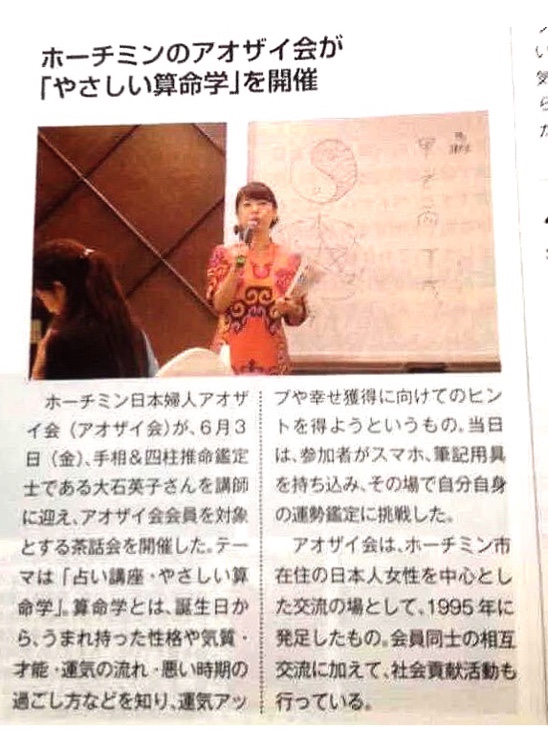 ホーチミンのアオザイ会が
「やさしい算命学」を開催
ホーチミン日本婦人アオザ
イ会（アオザイ会）が、6月3
日（金）、手相＆四柱推命鑑定
士である大石英子さんを講師
に迎え、アオザイ会会員を対象
とする茶話会を開催した。テー
マは「占い講座・やさしい算
命学」。算命学とは、誕生日か
ら、うまれ持った性格や気質・
才能・運気の流れ・悪い時期の
過ごし方などを知り、運気アッ
プや幸せ獲得に向けてのヒン
トを得ようというもの。当日
は、参加者がスマホ、筆記用具
を持ち込み、その場で自分自身
の運勢鑑定に挑戦した。
アオザイ会は、ホーチミン市
在住の日本人女性を中心とし
た交流の場として、1995年に
発足したもの。会員同士の相互
交流に加えて、社会貢献活動も
行っている。